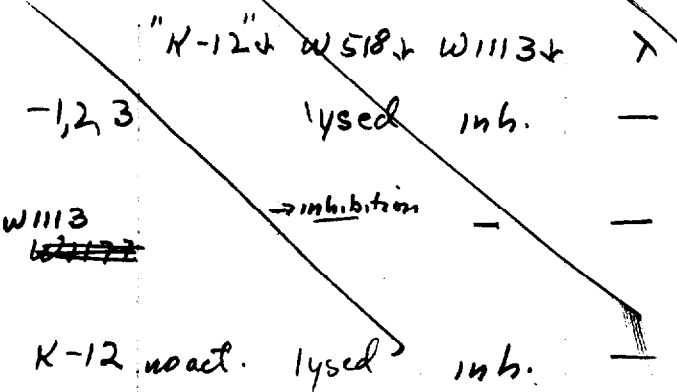 "K-12"↓ W518↓ W1113↓ λ
-1,2,3 lysed inh. —
W1113 → inhibition - —
K-12 no act. lysed inh. —